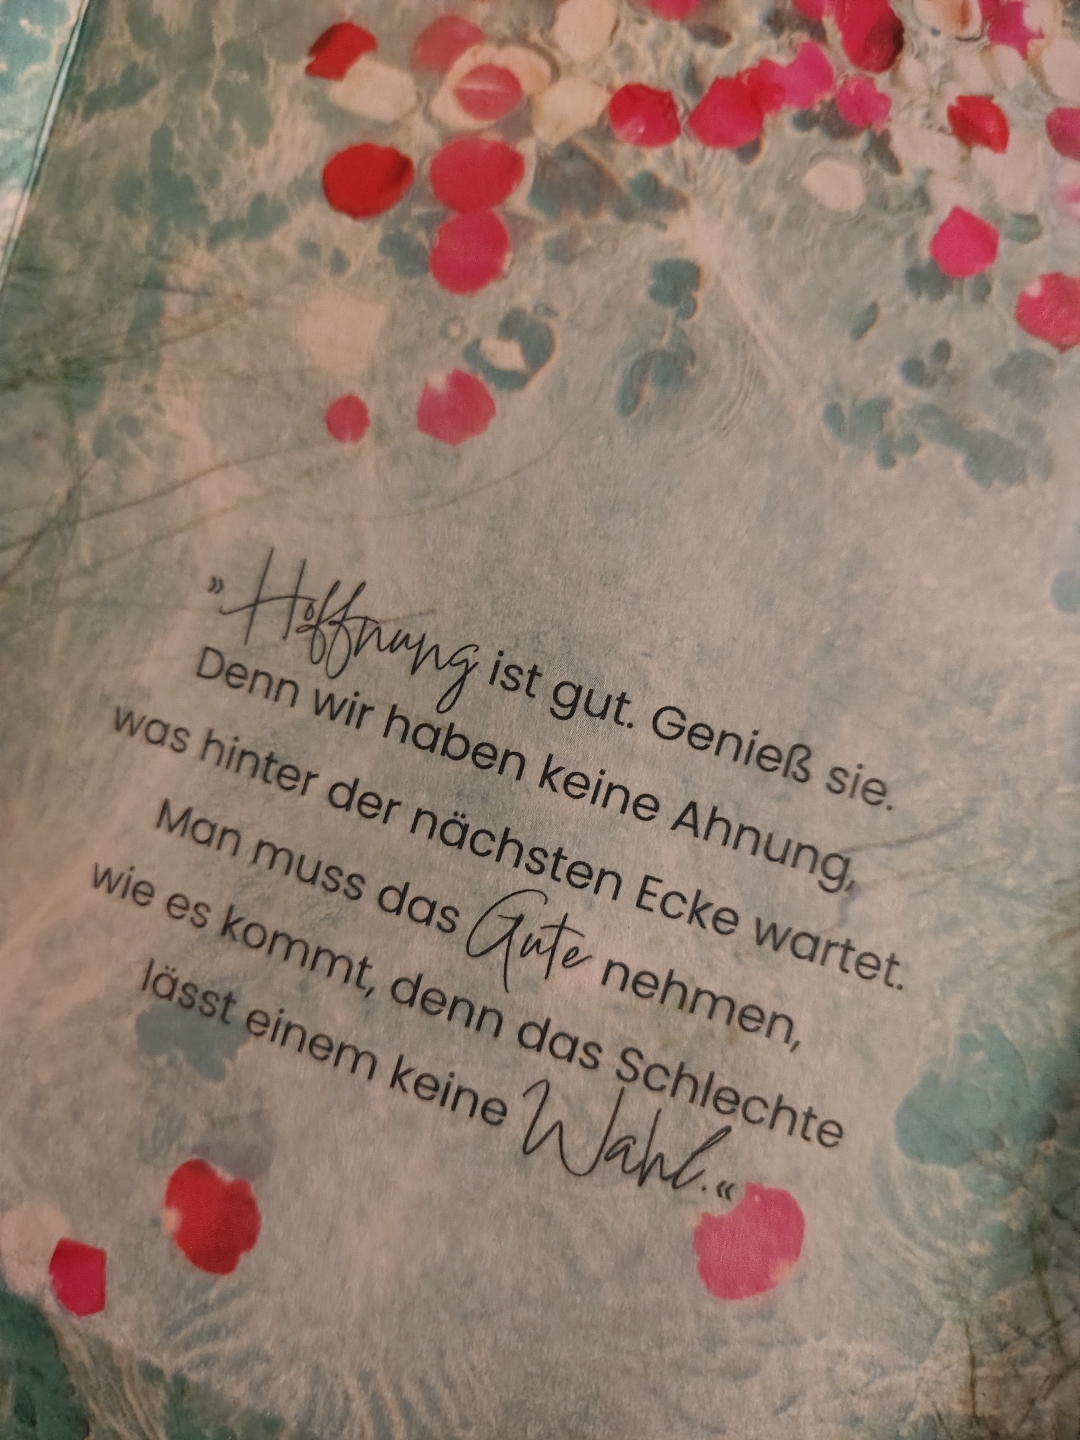 »Hoffnung ist gut. Genieß sie.
Denn wir haben keine Ahnung,
was hinter der nächsten Ecke wartet.
Man muss das Gute nehmen,
wie es kommt, denn das Schlechte
lässt einem keine Wahl.«